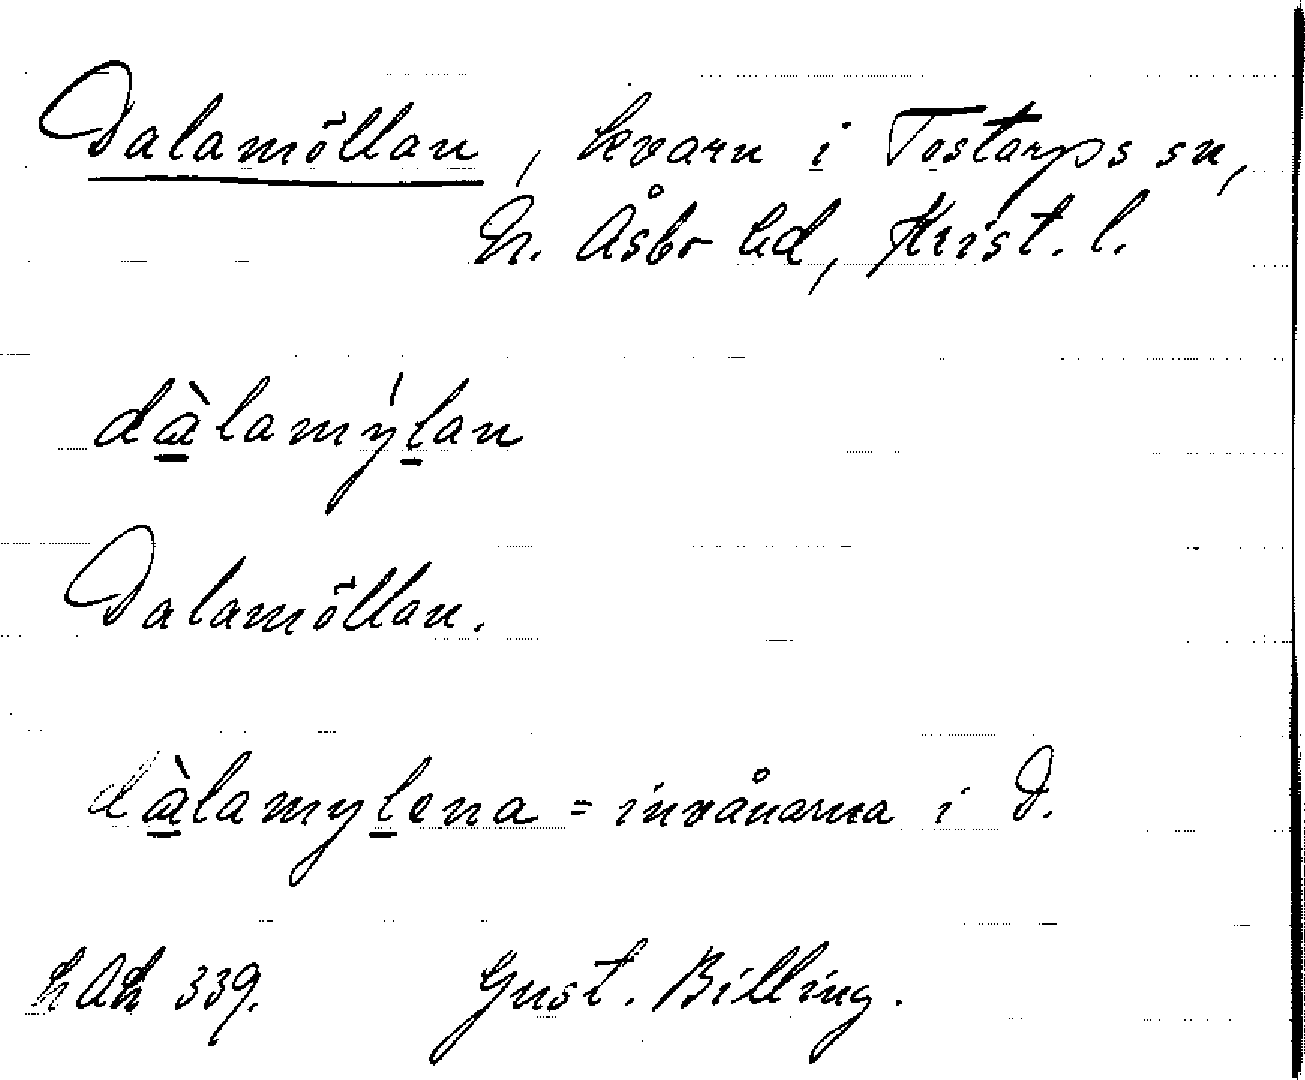 Dalamöllan, kvarn i Tostarps sn,
N. Åsbo hd, Krist. l.
dàlamýlan
Dalamöllan.
dàlamylena = invånarna i D.
339. Gust. Billing.